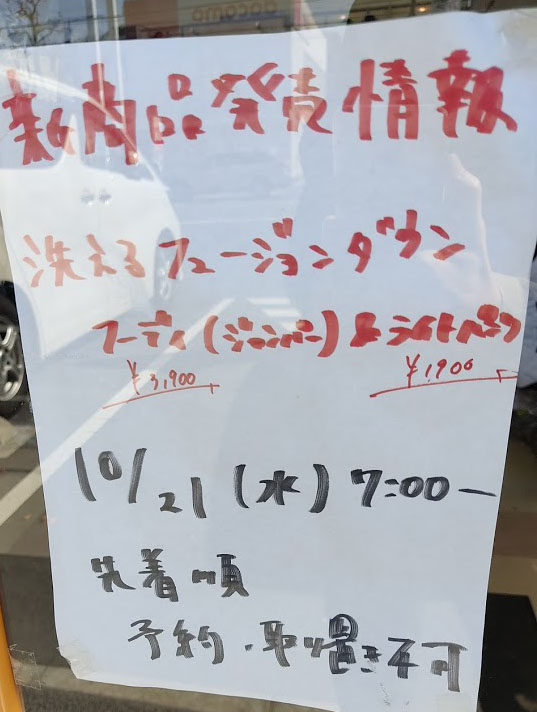 docomo
新商品発売情報
洗えるフュージョンダウン
フーディ(ジャンパー)&ライトパンツ
¥3,900 ¥1,900
10/21(水)7:00ー
先着順
予約・取置き不可